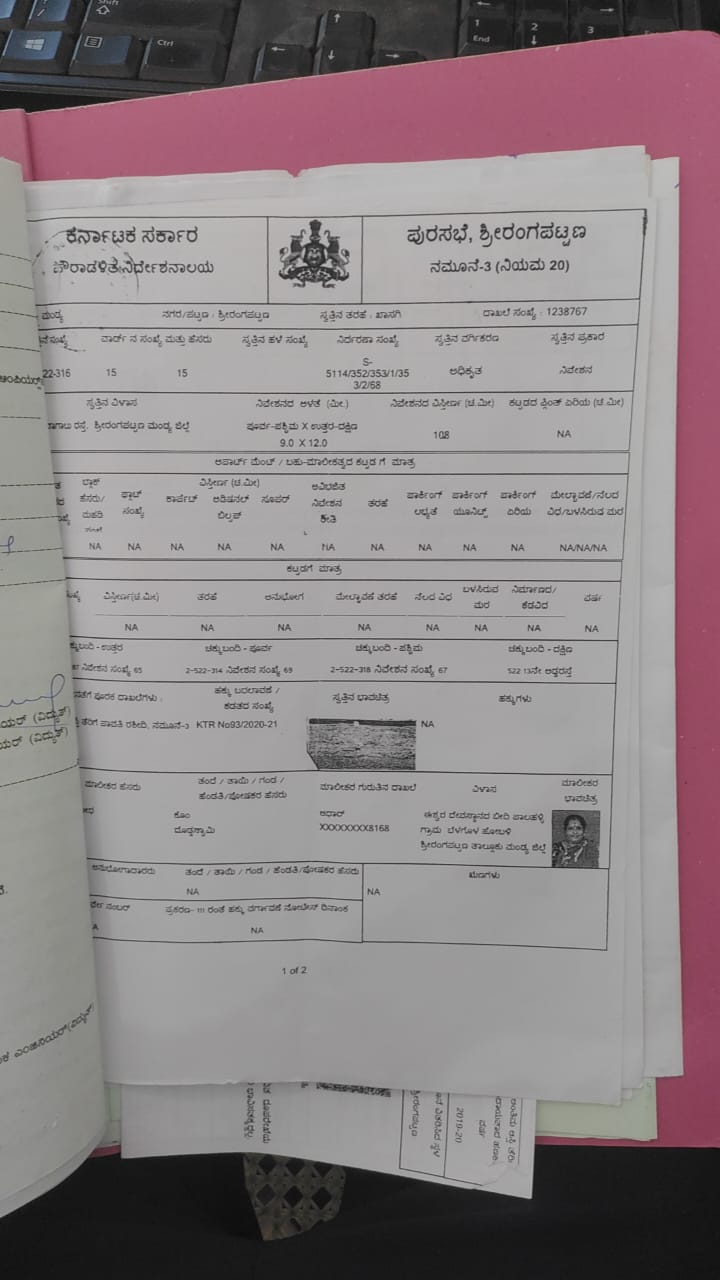 ಕರ್ನಾಟಕ ಸರ್ಕಾರ
ಪೌರಾಡಳಿತ ನಿರ್ದೇಶನಾಲಯ
ಪುರಸಭೆ, ಶ್ರೀರಂಗಪಟ್ಟಣ
ನಮೂನೆ-3 (ನಿಯಮ 20)
ಮಂಡ್ಯ ನಗರ/ಪಟ್ಟಣ : ಶ್ರೀರಂಗಪಟ್ಟಣ ಸ್ವತ್ತಿನ ತರಹೆ : ಖಾಸಗಿ ದಾಖಲೆ ಸಂಖ್ಯೆ : 1238767
ವಾರ್ಡ್ ನ ಸಂಖ್ಯೆ ಮತ್ತು ಹೆಸರು ಸ್ವತ್ತಿನ ಹಳೆ ಸಂಖ್ಯೆ ನಿರ್ಧರಣಾ ಸಂಖ್ಯೆ ಸ್ವತ್ತಿನ ವರ್ಗಿಕರಣ ಸ್ವತ್ತಿನ ಪ್ರಕಾರ
22-316 15 15 S-5114/352/353/1/35 ಅಧಿಕೃತ ನಿವೇಶನ
3/2/68
ಸ್ವತ್ತಿನ ವಿಳಾಸ ನಿವೇಶನದ ಅಳತೆ (ಮೀ.) ನಿವೇಶನದ ವಿಸ್ತೀರ್ಣ (ಚ.ಮೀ) ಕಟ್ಟಡದ ಪ್ಲಿಂತ್ ಏರಿಯ (ಚ.ಮೀ)
ರಸ್ತೆ, ಶ್ರೀರಂಗಪಟ್ಟಣ ಮಂಡ್ಯ ಜಿಲ್ಲೆ ಪೂರ್ವ-ಪಶ್ಚಿಮ X ಉತ್ತರ-ದಕ್ಷಿಣ 108 NA
9.0 X 12.0
ಅಪಾರ್ಟ್ ಮೆಂಟ್ / ಬಹು-ಮಾಲೀಕತ್ವದ ಕಟ್ಟಡ ಗೆ ಮಾತ್ರ
ಬ್ಲಾಕ್ ವಿಸ್ತೀರ್ಣ (ಚ.ಮೀ) ಅವಿಭಜಿತ
ಹೆಸರು/ ಫ್ಲಾಟ್ ಕಾರ್ಪೆಟ್ ಅಡಿಷನಲ್ ಸೂಪರ್ ನಿವೇಶನ ತರಹೆ ಪಾರ್ಕಿಂಗ್ ಪಾರ್ಕಿಂಗ್ ಪಾರ್ಕಿಂಗ್ ಮೇಲ್ಛಾವಣಿ/ನೆಲದ
ಮಹಡಿ ಸಂಖ್ಯೆ ಬಿಲ್ಟಪ್ ಲಭ್ಯತೆ ಯೂನಿಟ್ಸ್ ಏರಿಯ ವಿಧ/ಬಳಸಿರುವ ಮರ
NA NA NA NA NA NA NA NA NA NA NA/NA/NA
ಕಟ್ಟಡಗೆ ಮಾತ್ರ
ವಿಸ್ತೀರ್ಣ(ಚ.ಮೀ) ತರಹೆ ಅನುಭೋಗ ಮೇಲ್ಛಾವಣಿ ತರಹೆ ನೆಲದ ವಿಧ ಬಳಸಿರುವ ಮರ ನಿರ್ಮಾಣದ/ಕೆಡವಿದ ವರ್ಷ
NA NA NA NA NA NA NA NA
ಚಕ್ಕುಬಂದಿ - ಉತ್ತರ ಚಕ್ಕುಬಂದಿ - ಪೂರ್ವ ಚಕ್ಕುಬಂದಿ - ಪಶ್ಚಿಮ ಚಕ್ಕುಬಂದಿ - ದಕ್ಷಿಣ
ನಿವೇಶನ ಸಂಖ್ಯೆ 65 2-522-314 ನಿವೇಶನ ಸಂಖ್ಯೆ 69 2-522-318 ನಿವೇಶನ ಸಂಖ್ಯೆ 67 522 13ನೇ ಅಡ್ಡರಸ್ತೆ
ಪೂರಕ ದಾಖಲೆಗಳು : ಹಕ್ಕು ಬದಲಾವಣೆ / ಸ್ವತ್ತಿನ ಭಾವಚಿತ್ರ ಹಕ್ಕುಗಳು
ಕಡತದ ಸಂಖ್ಯೆ
ತೆರಿಗೆ ಪಾವತಿ ರಶೀದಿ, ನಮೂನೆ-3 KTR No93/2020-21 NA
ಮಾಲೀಕರ ಹೆಸರು ತಂದೆ / ತಾಯಿ / ಗಂಡ / ಮಾಲೀಕರ ಗುರುತಿನ ದಾಖಲೆ ವಿಳಾಸ ಮಾಲೀಕರ
ಹೆಂಡತಿ/ಪೋಷಕರ ಹೆಸರು ಭಾವಚಿತ್ರ
ಕೊಂ ಆಧಾರ್ ಈಶ್ವರ ದೇವಸ್ಥಾನದ ಬೀದಿ ಪಾಲಹಳ್ಳಿ
ದೊಡ್ಡಸ್ವಾಮಿ XXXXXXXX8168 ಗ್ರಾಮ ಬೆಳಗೊಳ ಹೋಬಳಿ
ಶ್ರೀರಂಗಪಟ್ಟಣ ತಾಲ್ಲೂಕು ಮಂಡ್ಯ ಜಿಲ್ಲೆ
ಅನುಭೋಗದಾರರು ತಂದೆ / ತಾಯಿ / ಗಂಡ / ಹೆಂಡತಿ/ಪೋಷಕರ ಹೆಸರು ಋಣಗಳು
NA NA
ನಂಬರ್ ಪ್ರಕರಣ- III ರಂತೆ ಹಕ್ಕು ವರ್ಗಾವಣೆ ನೋಟೀಸ್ ದಿನಾಂಕ
NA
1 of 2
2019-20